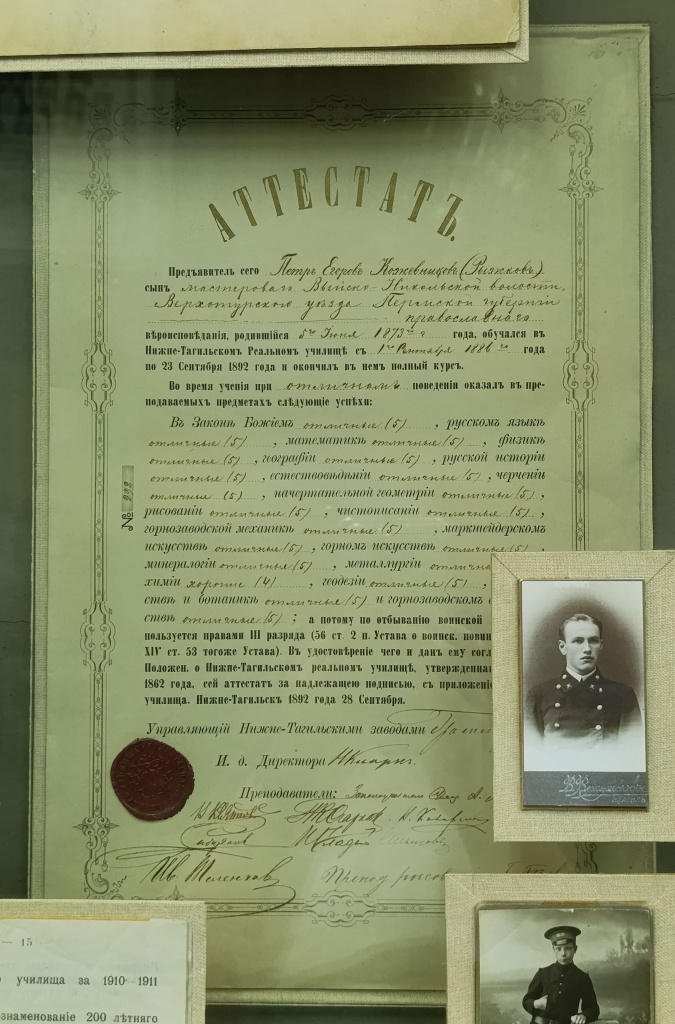 АТТЕСТАТЪ.
Предъявитель сего Петръ Егоровъ Кожевниковъ (Рыжковъ)
сынъ мастероваго Выйско-Никольской волости,
Верхотурскаго уѣзда Пермской губерніи
православнаго
вѣроисповѣданія, родившійся 5го Іюня 1873 года, обучался въ
Нижне-Тагильскомъ Реальномъ училищѣ съ 1го Сентября 1886 года
по 23 Сентября 1892 года и окончилъ въ немъ полный курсъ.
Во время ученія при отличномъ поведеніи оказалъ въ пре-
подаваемыхъ предметахъ слѣдующіе успѣхи:
Въ Законѣ Божіемъ отличные (5), русскомъ языкѣ
отличные (5), математикѣ отличные (5), физикѣ
отличные (5), географіи отличные (5), русской исторіи
отличные (5), естествовѣдѣніи отличные (5), черченіи
отличные (5), начертательной геометріи отличные (5),
рисованіи отличные (5), чистописаніи отличные (5),
горнозаводской механикѣ отличные (5), маркшейдерскомъ
искусствѣ отличные (5), горномъ искусствѣ отличные (5),
минералогіи отличные (5), металлургіи
химіи хорошіе (4), геодезіи отличные (5),
ствѣ и ботаникѣ отличные (5) и горнозаводскомъ
ствѣ отличные (5); а потому по отбыванію воинской
пользуется правами III разряда (56 ст. 2 п. Устава о воинск. повин
XIV ст. 53 тогоже Устава). Въ удостовѣреніе чего и данъ ему согл
Положен. о Нижне-Тагильскомъ реальномъ училищѣ, утвержденна
1862 года, сей аттестатъ за надлежащею подписью, съ приложені
училища. Нижне-Тагильскъ 1892 года 28 Сентября.
№
Управляющій Нижне-Тагильскими заводами
И. д. Директора
Преподаватели:
— 15
училища за 1910-1911
знаменованіе 200 лѣтняго